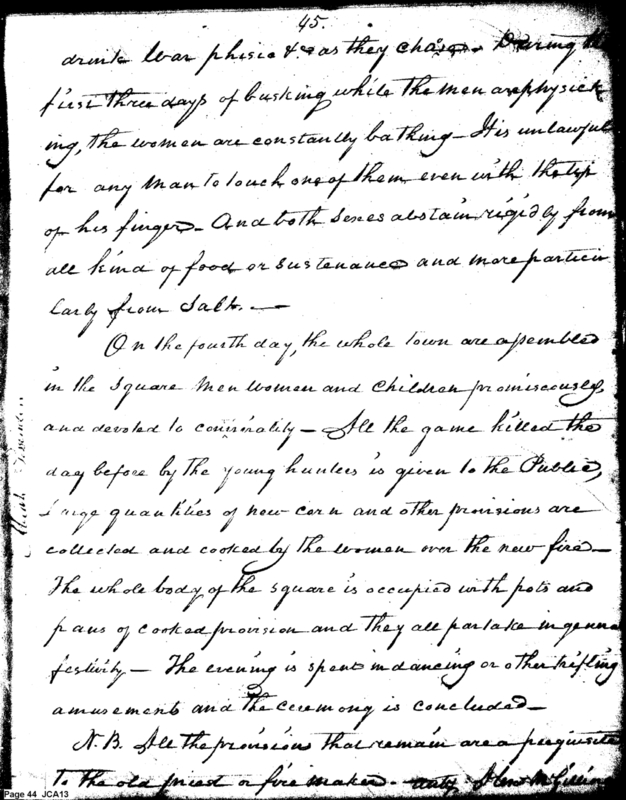 45.
drink War phisic &c as they chose. During the
first three days of busking while the men are physick
ing, the women are constantly bathing - It is unlawful
for any man to touch one of them even with the tip
of his finger - And both Sexes abstain rigidly from
all kind of food or sustenance and more particu
larly from Salt. -
On the fourth day, the whole town are assembled
in the Square men women and children promiscously,
and devoted to conviviality - All the game killed the
day before by the young hunters is given to the Public,
Large quantities of new corn and other provisions are
collected and cooked by the women over the new fire -
The whole body of the square is occupied with pots and
pans of cooked provision and they all partake in general
festivity - The evening is spent in dancing or other trifling
amusements and the ceremony is concluded -
N.B. All the provisions that remain are a perquisite
to the old priest or fire maker. - Alexr McGillivray
Page 44 JCA13